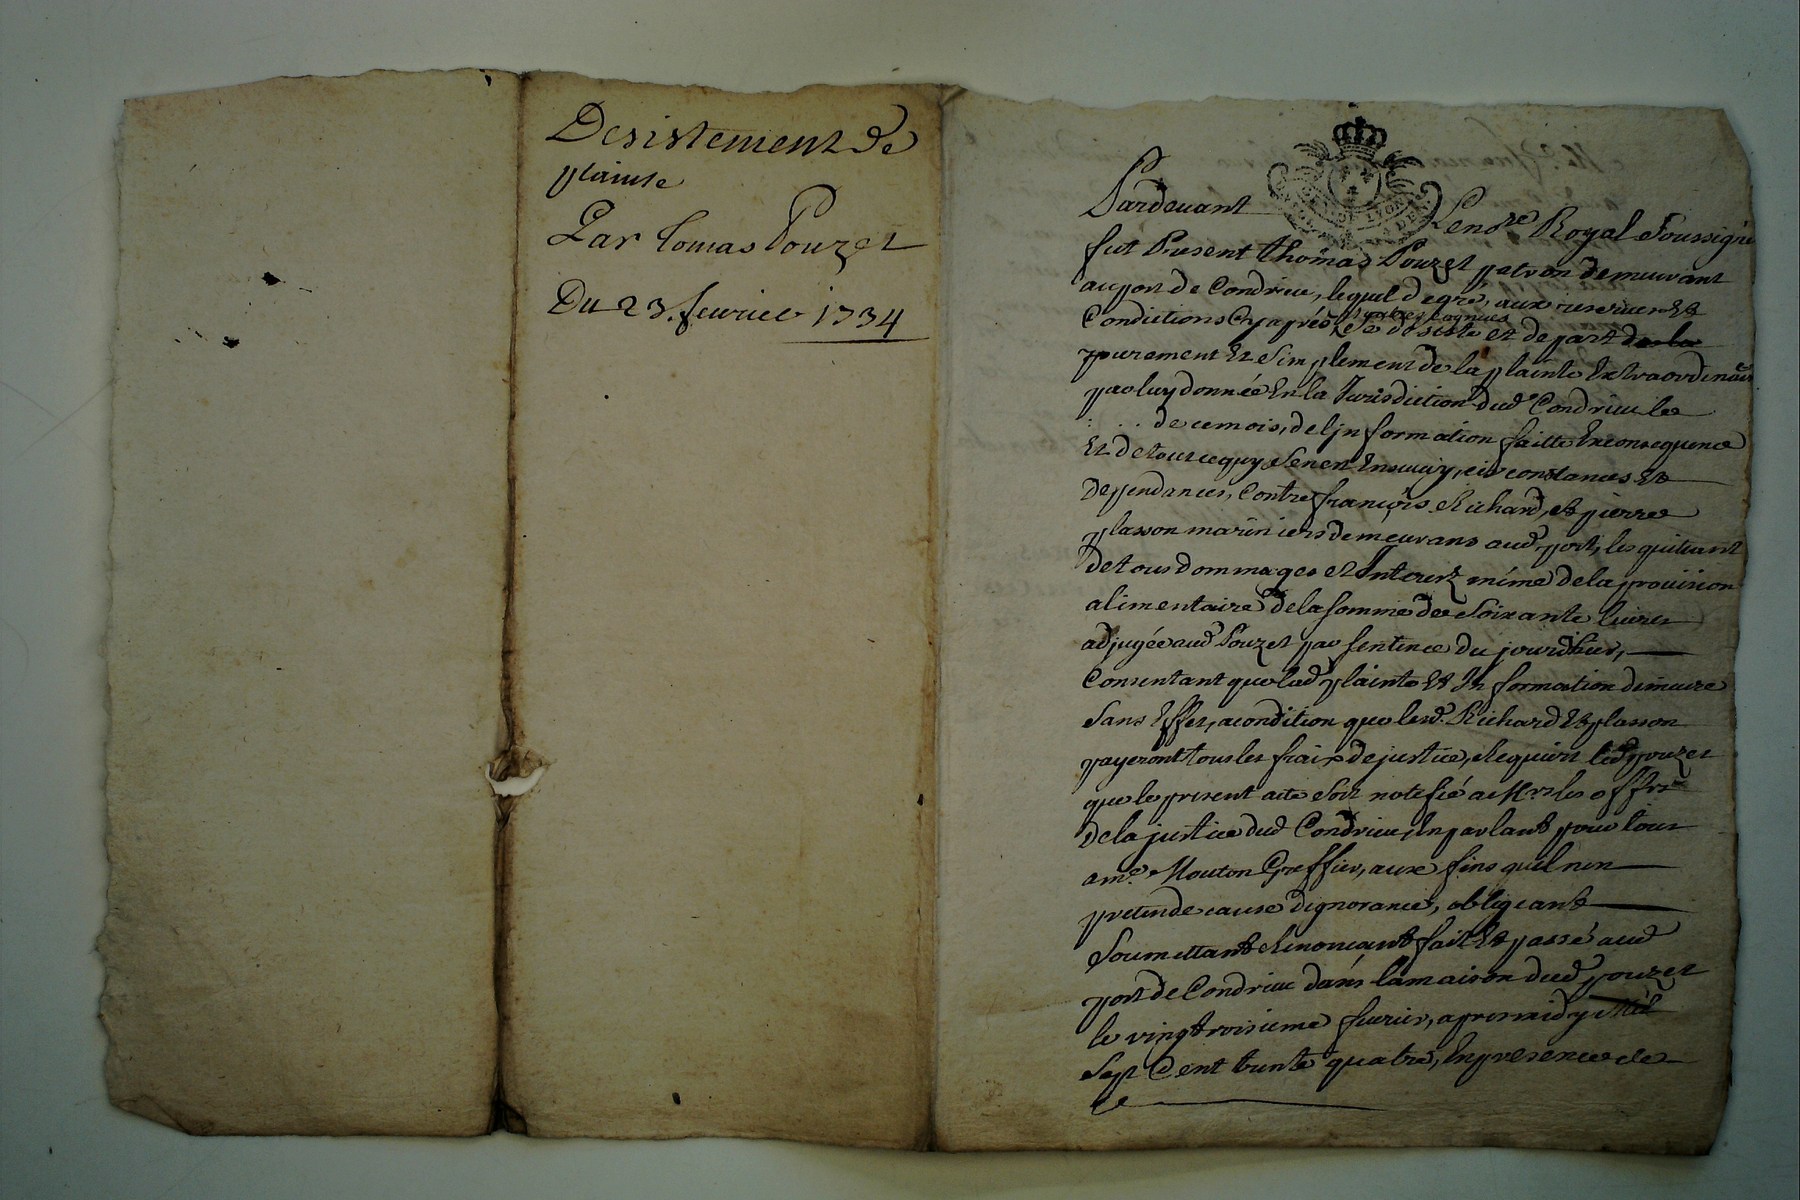 Desistement de
plainte
Par Tomas Pouzet
Du 23. fevrier 1734
Pardevant Le no.re Royal Soussigné
fut Present thomas Pouzet patron demeurant
au port de Condrieu, lequel de gré, aux reserves Et
Conditions Cy après Se desiste et depart de la
purement Et Simplement de la plainte Extraordinaire
par luy donnée En la Jurisdiction dud. Condrieu le
: . . de ce mois, de l'jnformation faitte En consequence
Et de tout ce quy S'en est Ensuivy, circonstances Et
dependances, Contre françois Richard, et pierre
plasson mariniers demeurans aud. port, les quittant
de tous dommages et Interetz même de la provision
alimentaire de la somme de Soixante livres
adjugée aud. Pouzet par sentence du jourdhier,
Consentant que lad. plainte Et Information demeure
Sans Effet, a condition que lesd. Richard Et plasson
payeront tous les frais de justice, Requiert led. pouzet
que le present acte Soit notifié a Mrs les offrs
de la justice dud. Condrieu, En parlant pour tous
a me. Mouton Greffier, aux fins quil n'en
pretende cause d'ignorance, obligeant
Soumettant Renonçant fait Et passé aud.
port de Condrieu dans la maison dud. pouzet
le vingt troisieme fevrier, apres midy Mil
Sept Cent trente quatre, En presence de